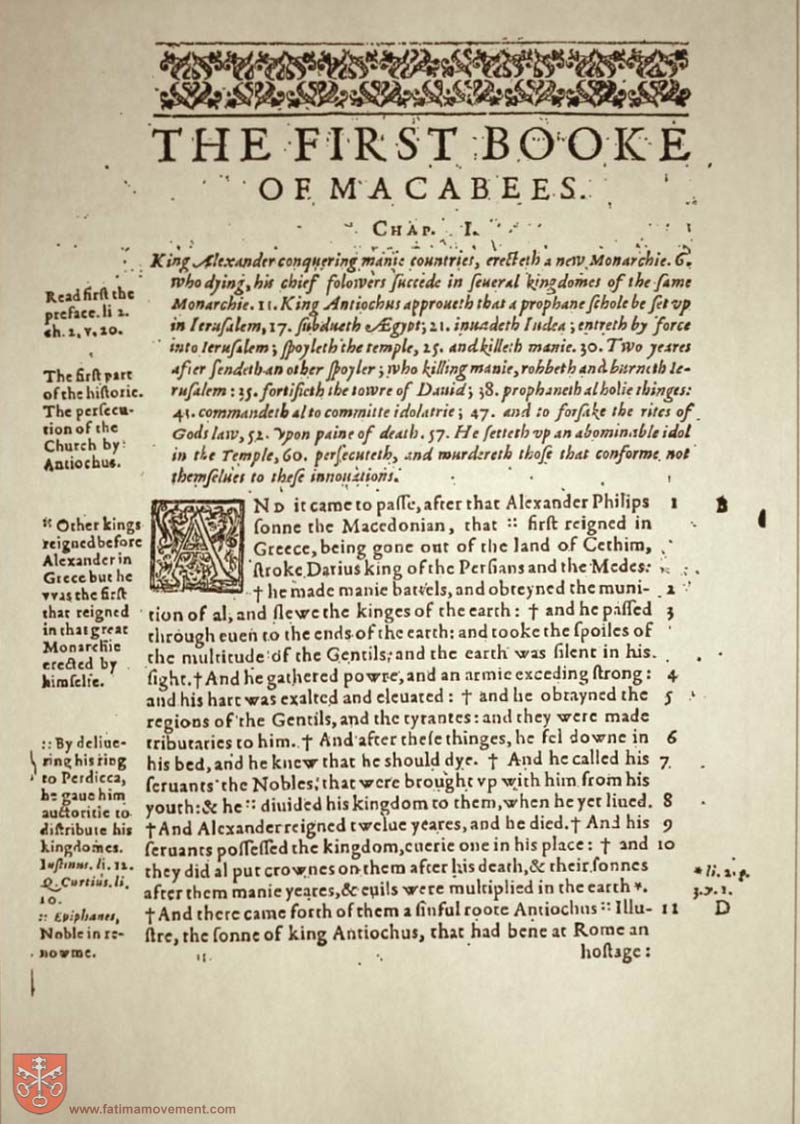 THE FIRST BOOKE
OF MACABEES.
CHAP. I.
King Alexander conquering manie countries, erecteth a new Monarchie. 6.
who dying, his chief folowers succede in seueral kingdomes of the same
Monarchie. 11. King Antiochus approueth that a prophane schole be set vp
in Ierusalem, 17. subdueth Ægypt; 21. inuadeth Iudea; entreth by force
into Ierusalem; spoyleth the temple, 25. and killeth manie. 30. Two yeares
after sendeth an other spoyler; who killing manie, robbeth and burneth Ie-
rusalem: 35. fortifieth the towre of Dauid; 38. prophaneth al holie thinges:
41. commandeth al to committe idolatrie; 47. and to forsake the rites of
Gods law, 52. vpon paine of death. 57. He setteth vp an abominable idol
in the Temple, 60. persecuteth, and murdereth those that conforme not
themselues to these innouations.
Read first the
preface. li 2.
ch. 2, v, 20.
The first part
of the historie.
The persecu-
tion of the
Church by
Antiochus.
AND it came to passe, after that Alexander Philips 1 B
sonne the Macedonian, that :: first reigned in
Greece, being gone out of the land of Cethim,
stroke Darius king of the Persians and the Medes:
† he made manie battels, and obteyned the muni- 2
tion of al, and slewe the kinges of the earth: † and he passed 3
through euen to the ends of the earth: and tooke the spoiles of
the multitude of the Gentils; and the earth was silent in his
sight. † And he gathered powre, and an armie exceding strong: 4
and his hart was exalted and eleuated: † and he obtayned the 5
regions of the Gentils, and the tyrantes: and they were made
tributaries to him. † And after these thinges, he fel downe in 6
his bed, and he knew that he should dye. † And he called his 7
seruants the Nobles, that were brought vp with him from his
youth: & he :: diuided his kingdom to them, when he yet liued. 8
† And Alexander reigned twelue yeares, and he died. † And his 9
seruants possessed the kingdom, euerie one in his place: † and 10
they did al put crownes on them after his death, & their sonnes
after them manie yeares, & euils were multiplied in the earth *.
† And there came forth of them a sinful roote Antiochus :: Illu- 11 D
stre, the sonne of king Antiochus, that had bene at Rome an
hostage:
:: Other kings
reigned before
Alexander in
Grece but he
vvas the first
that reigned
in that great
Monarchie
erected by
himselfe.
:: By deliue-
ring his ring
to Perdicca,
he gaue him
auctoritie to
distribute his
kingdomes.
Iustinus. li. 12.
Q. Curtius. li.
10.
:: Epiphanes,
Noble in re-
nowme.
* li. 2. p.
3. v. 1.
www.fatimamovement.com